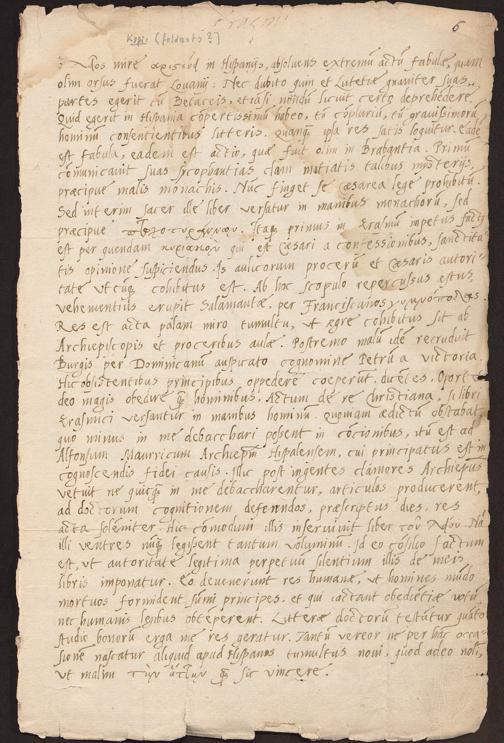 Erasmi
6
Kopie (foldnots?)
mire in Hispanijs, absoluens extremũ actũ fabulæ, quam
olim orsus fuerat Louanij: Nec dubito quin et Lutetiæ grauiter suas
partes egerit cũ Betaceis, etiãsi nondũ licuit certo deprehẽdere.
Quid egerit in Hispania cõpertissimũ habeo, tũ cõpluriũ, tũ grauissimorũ
hominũ consentientibus litteris. Quanq̃ ipsa res satis loquitur. Eadẽ
est fabula, eadem est actio, quæ fuit olim in Brabantia. Primũ
cõmunicauit suas sycophantias clam mutatis talibus mysterijs,
præcipue malis monachis. Nũc finget se cæsarea lege prohibitũ.
Sed interim sacer ille liber versatur in manibus monachorũ, sed
præcipue πτωχοτυράννων. Itaq; primus in Erasmũ impetus factus
est per quendam qui est cæsari a confessionibus, sanctita-
tis opinione suspiciendus. Is aulicorum procerũ et cæsaris autori-
tate vtcũq; cohibitus est. Ab hoc scopulo repercussus estus,
vehementius erupit Salamãtcæ, per Franciscanos
Res est acta palam miro tumultu, vt ægre cohibitus sit ab
Archiepiscopis et proceribus aulæ. Postremo malũ idẽ recruduit
Burgis per Dominicanũ auspicato cognomine Petrũ a victoria
Hic obsistentibus principibus, oppedere cœperũt, dicẽtes. Oportet
deo magis obedire q̃ hominibus. Actum de re Christiana, si libri
Erasmici versantur in manibus hominũ. Quoniam ædictũ obstabat,
quo minus in me debacchari possent in cõcionibus, itũ est ad
Alfonsum Mauricum Archiep̃m Hispalensem, cui principatus est in
cognoscendis fidei causis. Illic post ingentes clamores Archiepus
vetuit ne quicq̃ in me debaccharentur, articulos producerent,
ad doctorum cognitionem deferẽdos, præscriptus dies, res
acta solẽniter. Hic cõmodum illis inseruiuit liber τοῦ Nã
illi ventres nũq̃ legissent tantum voluminũ. Id eo cõsilio factum
est, vt autoritate legitima perpetuũ silentium illis de meis
libris imponatur. Eo deuenerunt res humanæ, vt homines mũdo
mortuos formident sum̃i principes, et qui iactant obediẽtiæ votũ
nec humanis legibus obtẽperent. Litteræ doctorũ testãtur quãto
studio bonorũ erga me res geratur. Tantũ vereor ne per hãc occa-
sionẽ nascatur aliquid apud Hispanos tumultus noui, quod adeo nolũ,
vt malim τὴν ἧτταν q̃ sic vincere.